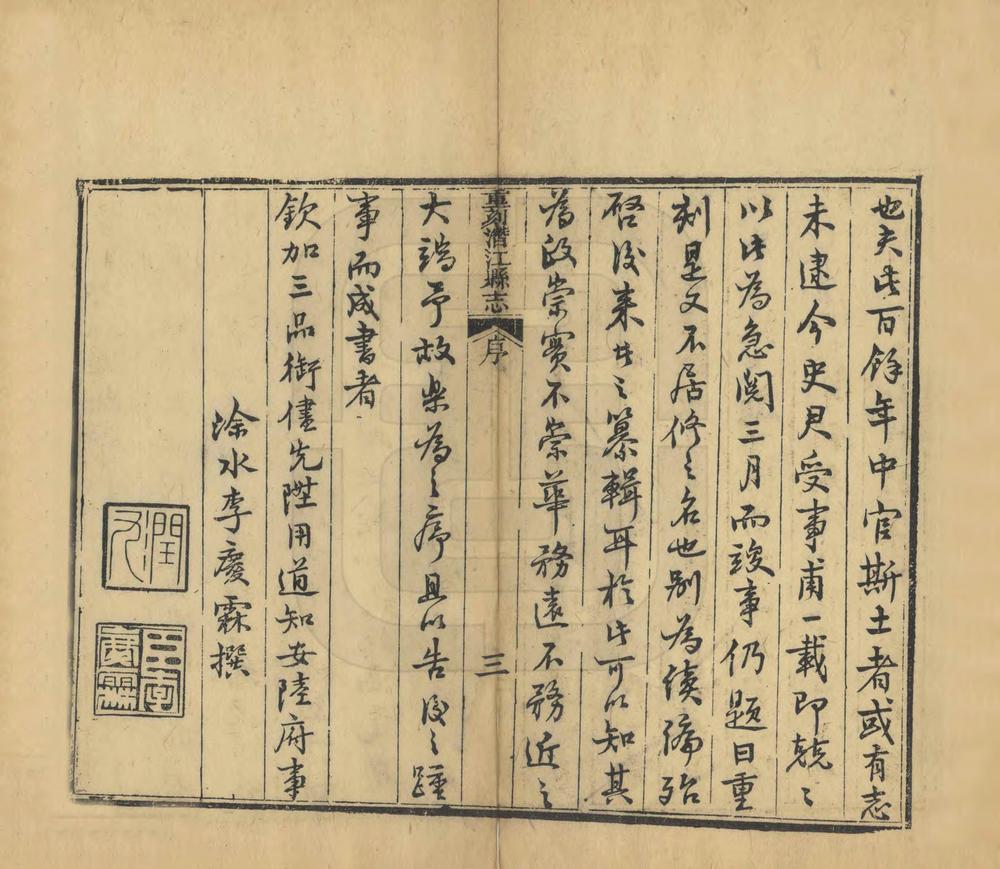 也夫此百餘年中官斯土者或有志
未逮今史君受事甫一載即兢〻
以此為急閱三月而竣事仍題曰重
刻是又不居修之名也別為續編殆
啓後来者之纂輯耳於此可以知其
為政崇實不崇華務遠不務近之
重刻潛江縣志
序
三
大端予故樂為之序且以告後之踵
事而成書者
欽加三品銜儘先陞用道知安陸府事
塗水李慶霖撰
潤
九